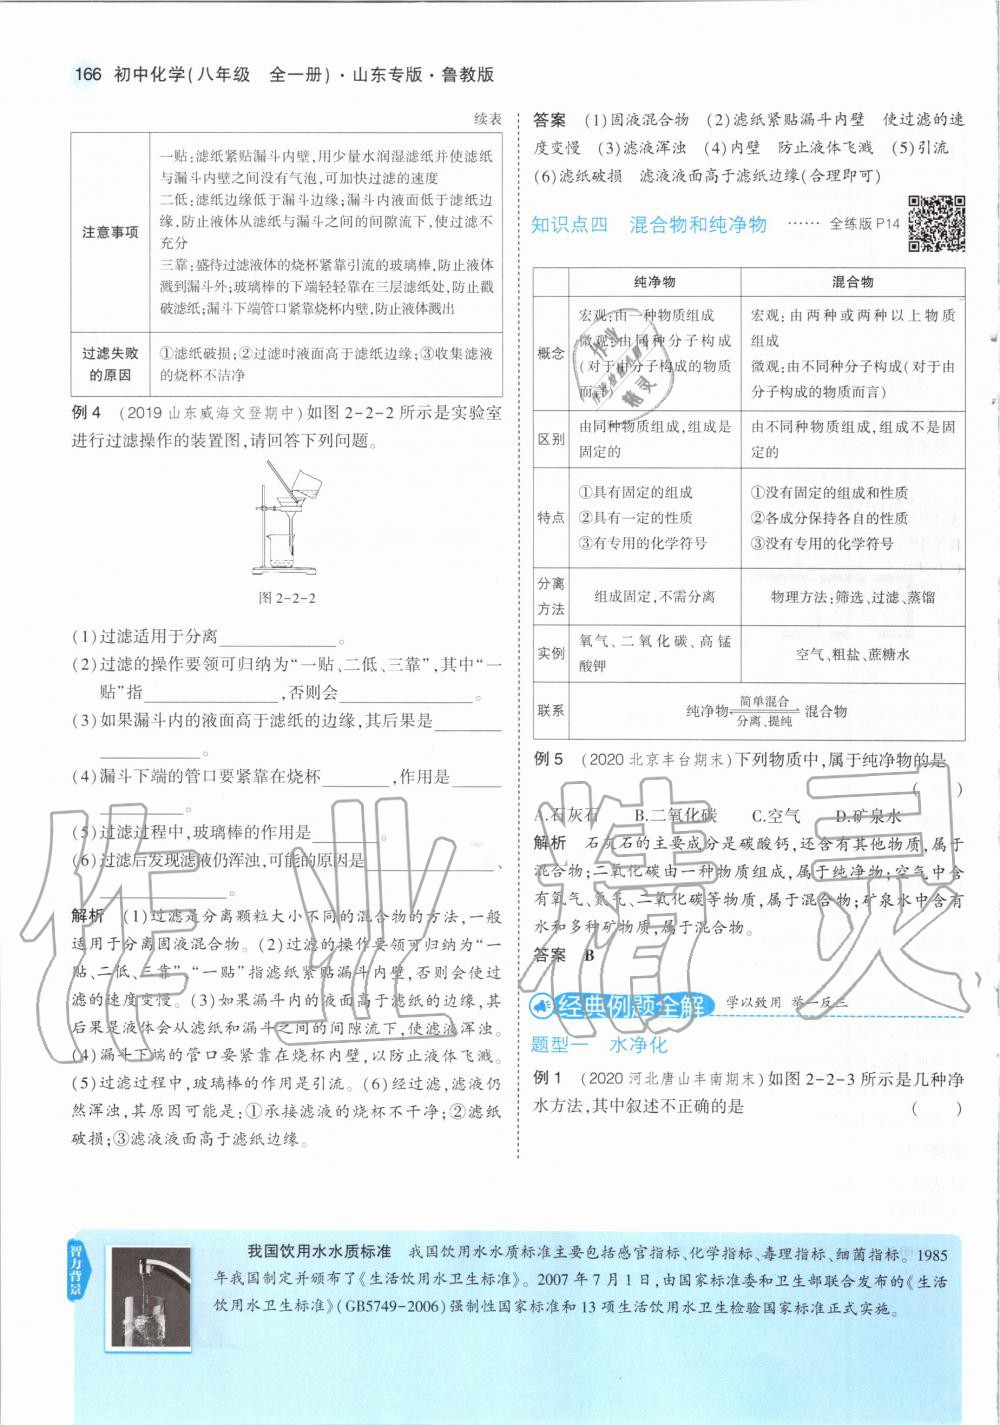 166 初中化学(八年级 全一册)·山东专版·鲁教版
续表
注意事项
一贴:滤纸紧贴漏斗内壁,用少量水润湿滤纸并使滤纸
与漏斗内壁之间没有气泡,可加快过滤的速度
二低:滤纸边缘低于漏斗边缘;漏斗内液面低于滤纸边
缘,防止液体从滤纸与漏斗之间的间隙流下,使过滤不
充分
三靠:盛待过滤液体的烧杯紧靠引流的玻璃棒,防止液体
溅到漏斗外;玻璃棒的下端轻轻靠在三层滤纸处,防止戳
破滤纸;漏斗下端管口紧靠烧杯内壁,防止液体溅出
过滤失败
的原因
①滤纸破损;②过滤时液面高于滤纸边缘;③收集滤液
的烧杯不洁净
例4 (2019山东威海文登期中)如图2-2-2所示是实验室
进行过滤操作的装置图,请回答下列问题。
图2-2-2
(1)过滤适用于分离____________。
(2)过滤的操作要领可归纳为“一贴、二低、三靠”,其中“一
贴”指______________,否则会______________。
(3)如果漏斗内的液面高于滤纸的边缘,其后果是_______
______________。
(4)漏斗下端的管口要紧靠在烧杯_______,作用是_____
____________。
(5)过滤过程中,玻璃棒的作用是__________。
(6)过滤后发现滤液仍浑浊,可能的原因是______________、
______________。
解析 (1)过滤是分离颗粒大小不同的混合物的方法,一般
适用于分离固液混合物。(2)过滤的操作要领可归纳为“一
贴、二低、三靠”,“一贴”指滤纸紧贴漏斗内壁,否则会使过
滤的速度变慢。(3)如果漏斗内的液面高于滤纸的边缘,其
后果是液体会从滤纸和漏斗之间的间隙流下,使滤液浑浊。
(4)漏斗下端的管口要紧靠在烧杯内壁,以防止液体飞溅。
(5)过滤过程中,玻璃棒的作用是引流。(6)经过滤,滤液仍
然浑浊,其原因可能是:①承接滤液的烧杯不干净;②滤纸
破损;③滤液液面高于滤纸边缘。
答案 (1)固液混合物 (2)滤纸紧贴漏斗内壁 使过滤的速
度变慢 (3)滤液浑浊 (4)内壁 防止液体飞溅 (5)引流
(6)滤纸破损 滤液液面高于滤纸边缘(合理即可)
知识点四 混合物和纯净物 …… 全练版P14
纯净物 混合物
概念
宏观:由一种物质组成
微观:由同种分子构成
(对于由分子构成的物质
而言)
宏观:由两种或两种以上物质
组成
微观:由不同种分子构成(对于由
分子构成的物质而言)
区别
由同种物质组成,组成是
固定的
由不同种物质组成,组成不是固
定的
特点
①具有固定的组成
②具有一定的性质
③有专用的化学符号
①没有固定的组成和性质
②各成分保持各自的性质
③没有专用的化学符号
分离
方法
组成固定,不需分离
物理方法:筛选、过滤、蒸馏
实例
氧气、二氧化碳、高锰
酸钾
空气、粗盐、蔗糖水
联系
纯净物 简单混合 混合物
分离、提纯
例5 (2020北京丰台期末)下列物质中,属于纯净物的是
( )
A.石灰石 B.二氧化碳 C.空气 D.矿泉水
解析 石灰石的主要成分是碳酸钙,还含有其他物质,属于
混合物;二氧化碳由一种物质组成,属于纯净物;空气中含
有氧气、氮气、二氧化碳等物质,属于混合物;矿泉水中含有
水和多种矿物质,属于混合物。
答案 B
经典例题全解 学以致用 举一反三
题型一 水净化
例1 (2020河北唐山丰南期末)如图2-2-3所示是几种净
水方法,其中叙述不正确的是 ( )
智力背景
我国饮用水水质标准 我国饮用水水质标准主要包括感官指标、化学指标、毒理指标、细菌指标。1985
年我国制定并颁布了《生活饮用水卫生标准》。2007年7月1日,由国家标准委和卫生部联合发布的《生活
饮用水卫生标准》(GB5749-2006)强制性国家标准和13项生活饮用水卫生检验国家标准正式实施。
作业精灵